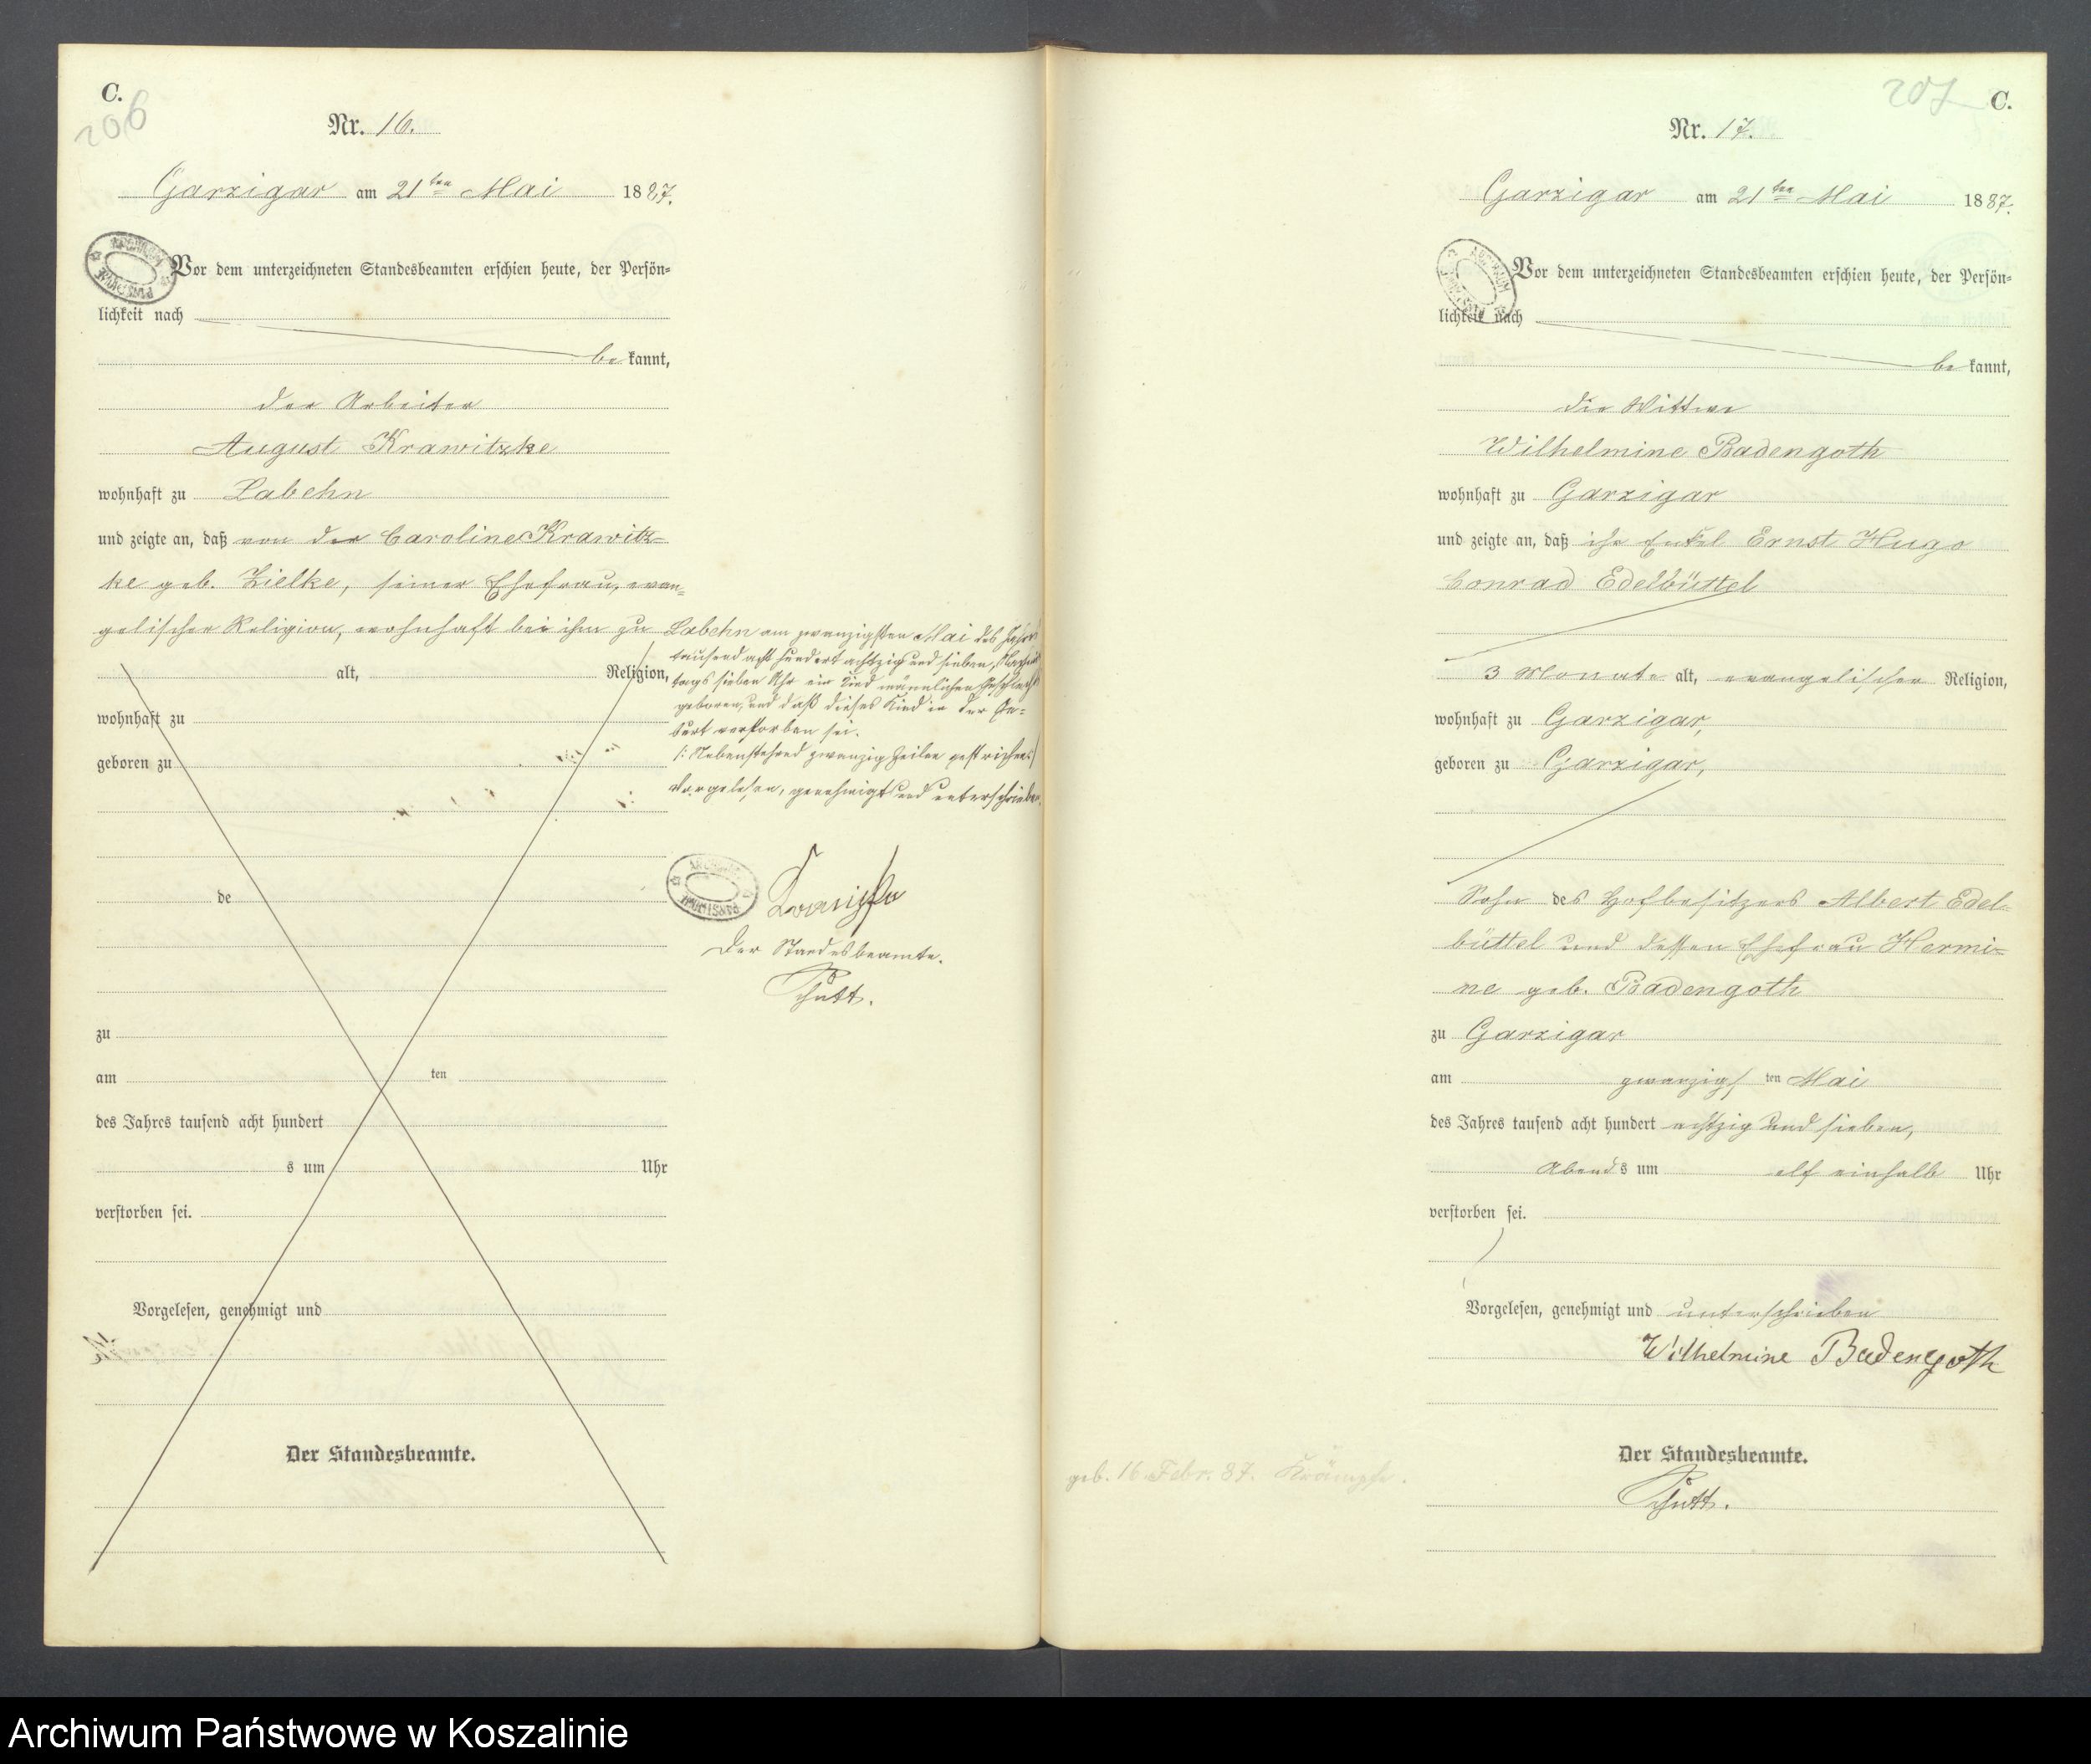 C.
206
Nr. 16.
Garzigar am 21ten Mai 1887.
Vor dem unterzeichneten Standesbeamten erschien heute, der Persön-
lichkeit nach
be kannt,
der Arbeiter
August Krawitzke
wohnhaft zu Labehn
und zeigte an, daß von der Caroline Krawitz-
ke geb. Zielke, seiner Ehefrau, evan-
gelischer Religion, wohnhaft bei ihm zu Labehn am zwanzigsten Mai des Jahres
tausend acht hundert achtzig und sieben, Nachmit
tags sieben Uhr ein Kind männlichen Geschlechts
geboren, und daß dieses Kind in der Ge-
burt verstorben sei.
/: Nebenstehend zwanzig Zeilen gestrichen :/
Vorgelesen, genehmigt und unterschrieben.
alt, Religion,
wohnhaft zu
geboren zu
de
Der Standesbeamte.
Schutt.
zu
am ten
des Jahres tausend acht hundert
s um Uhr
verstorben sei.
Vorgelesen, genehmigt und
Der Standesbeamte.
207
C.
Nr. 17.
Garzigar am 21ten Mai 1887.
Vor dem unterzeichneten Standesbeamten erschien heute, der Persön-
lichkeit nach
be kannt,
die Wittwe
Wilhelmine Badengoth
wohnhaft zu Garzigar
und zeigte an, daß ihr Enkel Ernst Hugo
Conrad Edelbüttel
3 Monate alt, evangelischer Religion,
wohnhaft zu Garzigar,
geboren zu Garzigar,
Sohn des Hofbesitzers Albert Edel-
büttel und dessen Ehefrau Hermi-
ne geb. Badengoth
zu Garzigar
am zwanzigs ten Mai
des Jahres tausend acht hundert achtzig und sieben,
Abends um elf einhalb Uhr
verstorben sei.
Vorgelesen, genehmigt und unterschrieben
Wilhelmine Badengoth
Der Standesbeamte.
Schutt.
geb. 16. Febr. 87. Krämpfe.
Archiwum Państwowe w Koszalinie